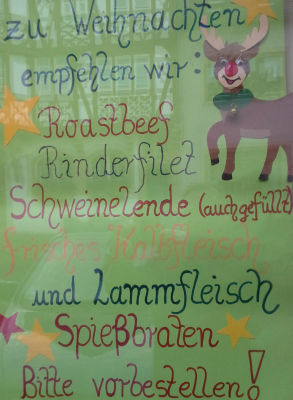 zu Weihnachten
empfehlen wir:
Roastbeef
Rinderfilet
Schweinelende (auch gefüllt)
frisches Kalbfleisch,
und Lammfleisch
Spießbraten
Bitte vorbestellen!